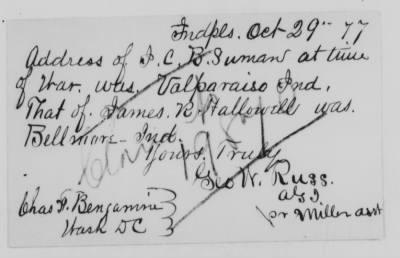 Indpls. Oct 29" 77
Address of I. C. B. Suman at time
of War. was, Valparaiso Ind,
That of. James. R. Hallowell was.
Bellmore Ind.
Yours, Truly
Geo W. Russ.
AGI
pr Miller asst
Chas F. Benjamine
Wash DC